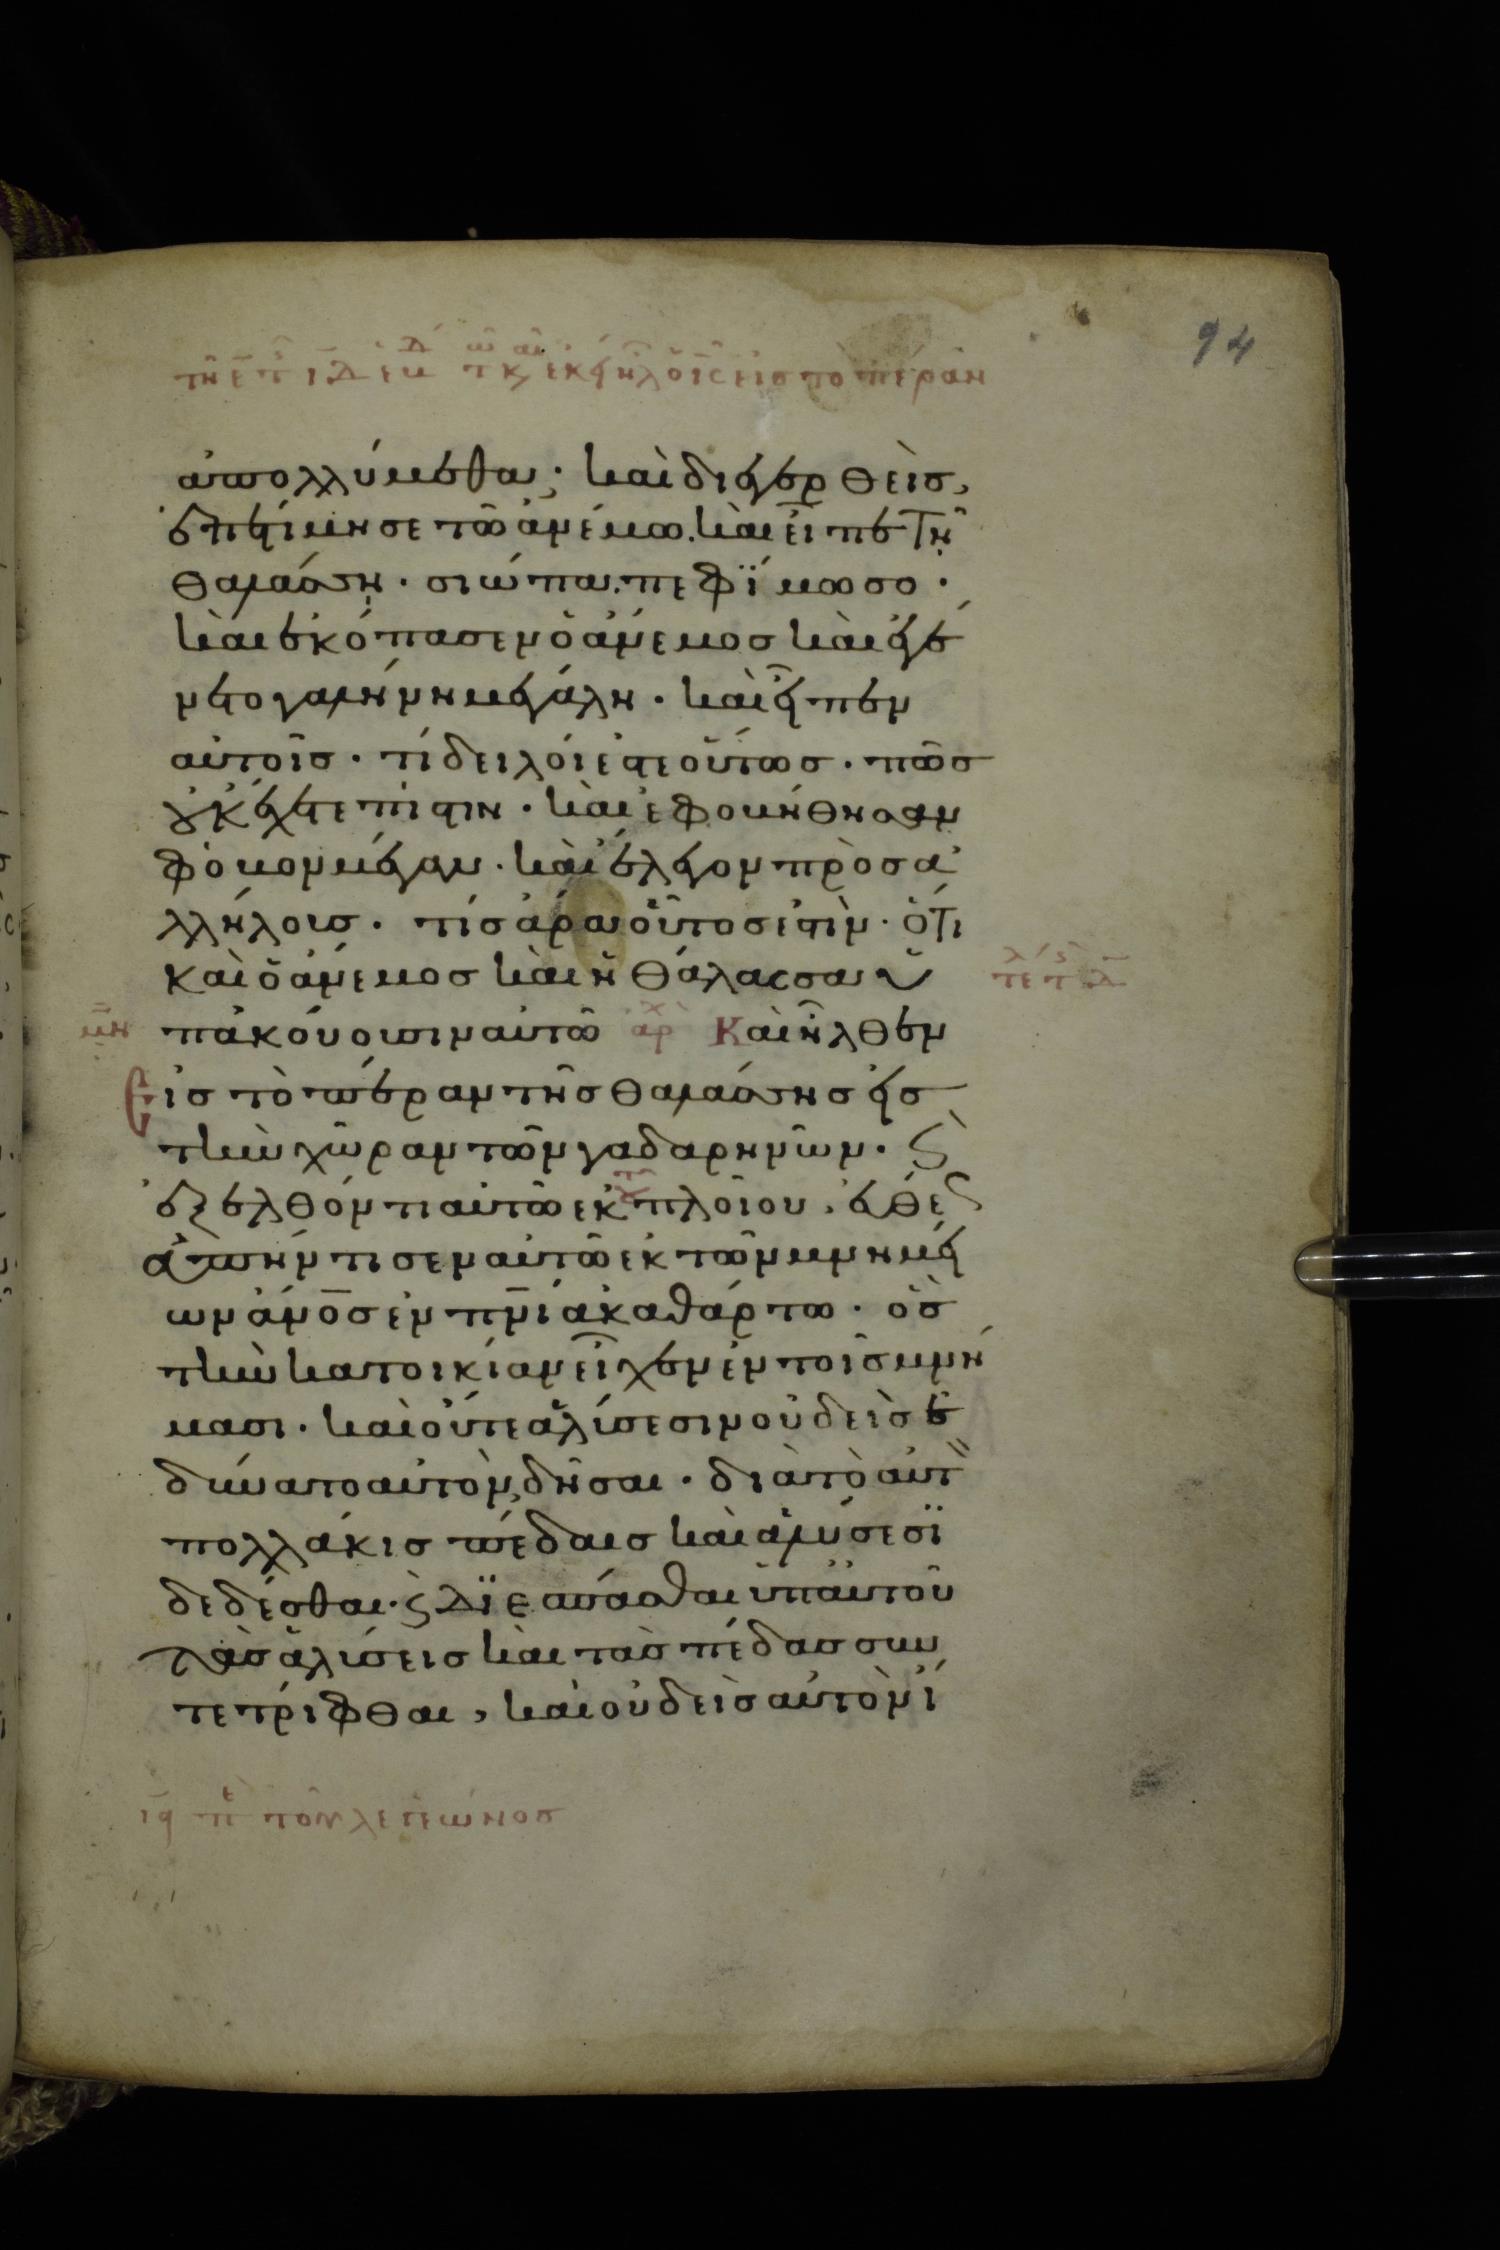 94
ἀπολλύμεθα; καὶ διεγερθεὶς,
ἐπετίμησε τῶ ἀνέμω. καὶ εἶπε τῆ
θαλάσση. σιώπα. πεφίμωσο.
καὶ ἐκόπασεν ὁ ἄνεμος καὶ ἐγέ
νετο γαλήνη μεγάλη. καὶ εἶπεν
αὐτοῖς. τί δειλοί ἐστε οὕτως. πῶς
οὐκ ἔχετε πίστιν. καὶ ἐφοβήθησαν
φόβον μέγαν. καὶ ἔλεγον πρὸς ἀ
λλήλους. τίς ἄρα οὗτος ἐστὶν. ὅτι
καὶ ὁ ἄνεμος καὶ ἡ θάλασσα ὑ
πακούουσιν αὐτῶ Καὶ ἦλθεν
Εἰς τὸ πέραν τῆς θαλάσσης εἰς
τὴν χῶραν τῶν γαδαρηνῶν. καὶ
ἐξελθόντι αὐτῶ ἐκ τοῦ πλοίου, εὐθέως
ἀπήντησεν αὐτῶ ἐκ τῶν μνημεί
ων ἄνος ἐν πνι ἀκαθάρτω. ὃς
τὴν κατοικίαν εἶχεν ἐν τοῖς μνή
μασι. καὶ οὔτε ἁλύσεσιν οὐδεὶς ἐ
δύνατο αὐτὸν δῆσαι. διὰ τὸ αὐτὸν
πολλάκις πέδαις καὶ ἁλύσεσι
δεδέσθαι. καὶ διεσπάσθαι ὑπ' αὐτοῦ
τὰς ἁλύσεις καὶ τὰς πέδας συν
τετρίφθαι, καὶ οὐδεὶς αὐτὸν ἴ